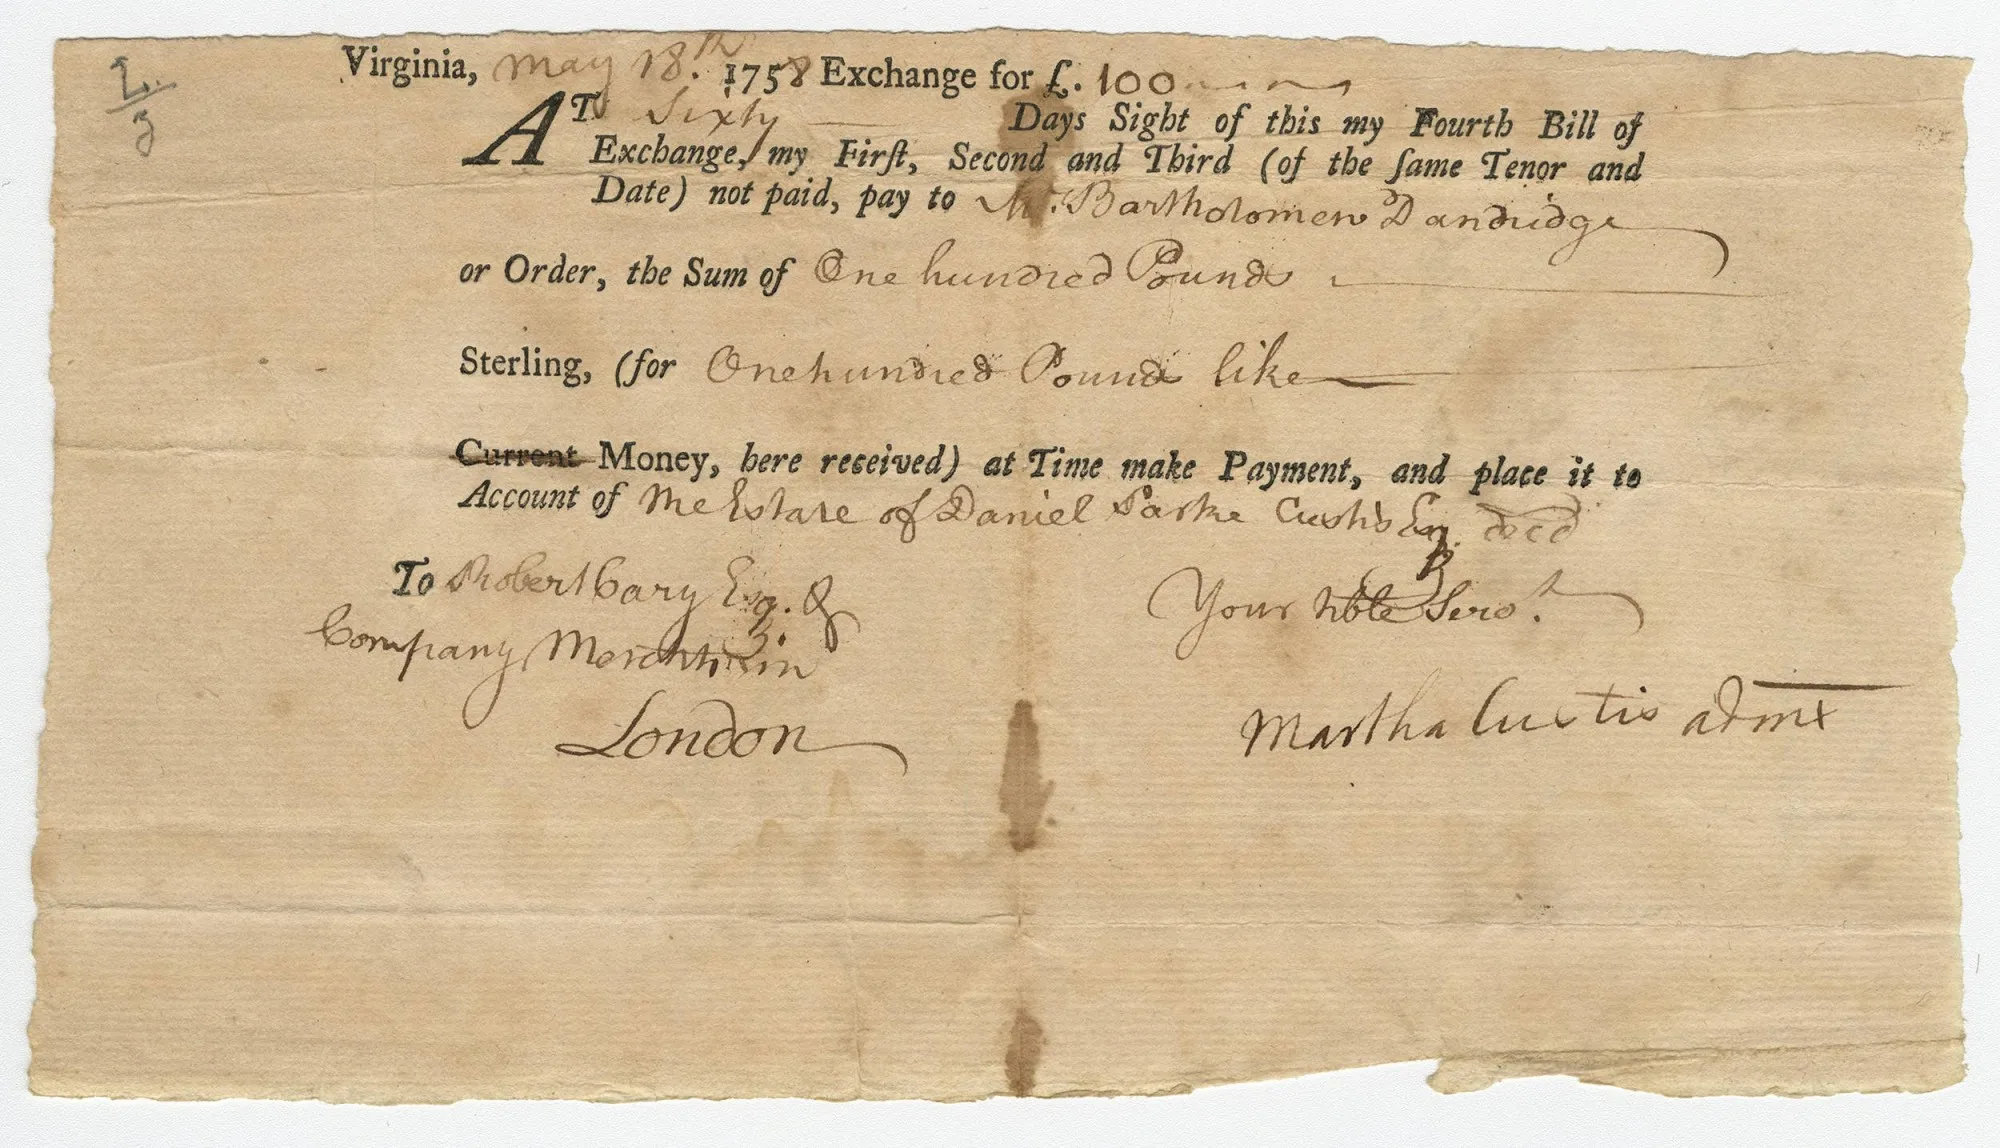 Virginia, May 18.th 1758 Exchange for £. 100
AT Sixty Days Sight of this my Fourth Bill of
Exchange, my Firſt, Second and Third (of the ſame Tenor and
Date) not paid, pay to Mr. Bartholomew Dandridge
or Order, the Sum of One hundred Pounds
Sterling, (for One hundred Pounds like
Current Money, here received) at Time make Payment, and place it to
Account of the Estate of Daniel Parke Custis Esq. decd
To Robert Cary Esq. &
Company Merchts. in
London
Your Hble Servt.
Martha Custis admx